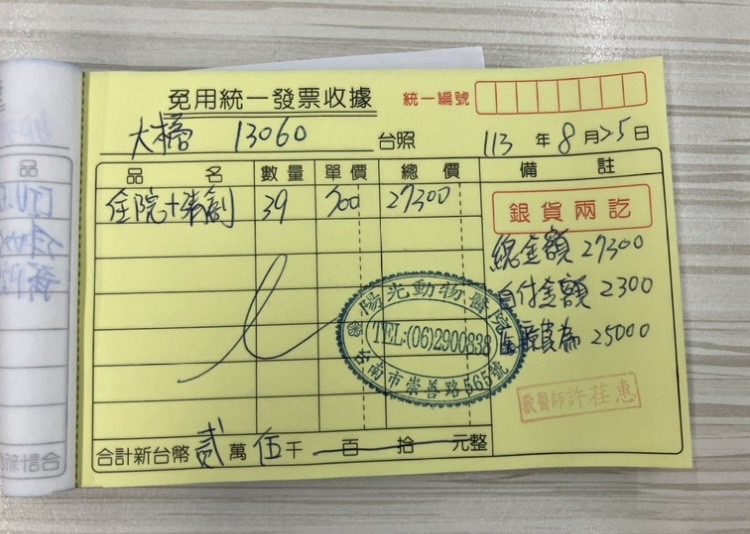 免用統一發票收據
統一編號
大橘 13060 台照
113 年 8 月 25 日
品名 數量 單價 總價 備註
住院+清創 39 700 27300
銀貨兩訖
總金額 27300
自付金額 2300
為 25000
陽光動物醫院
TEL:(06)2900838
台南市崇善路565號
獸醫師許荏惠
合計新台幣 貳 萬 伍 千 百 拾 元整
品
合計新台